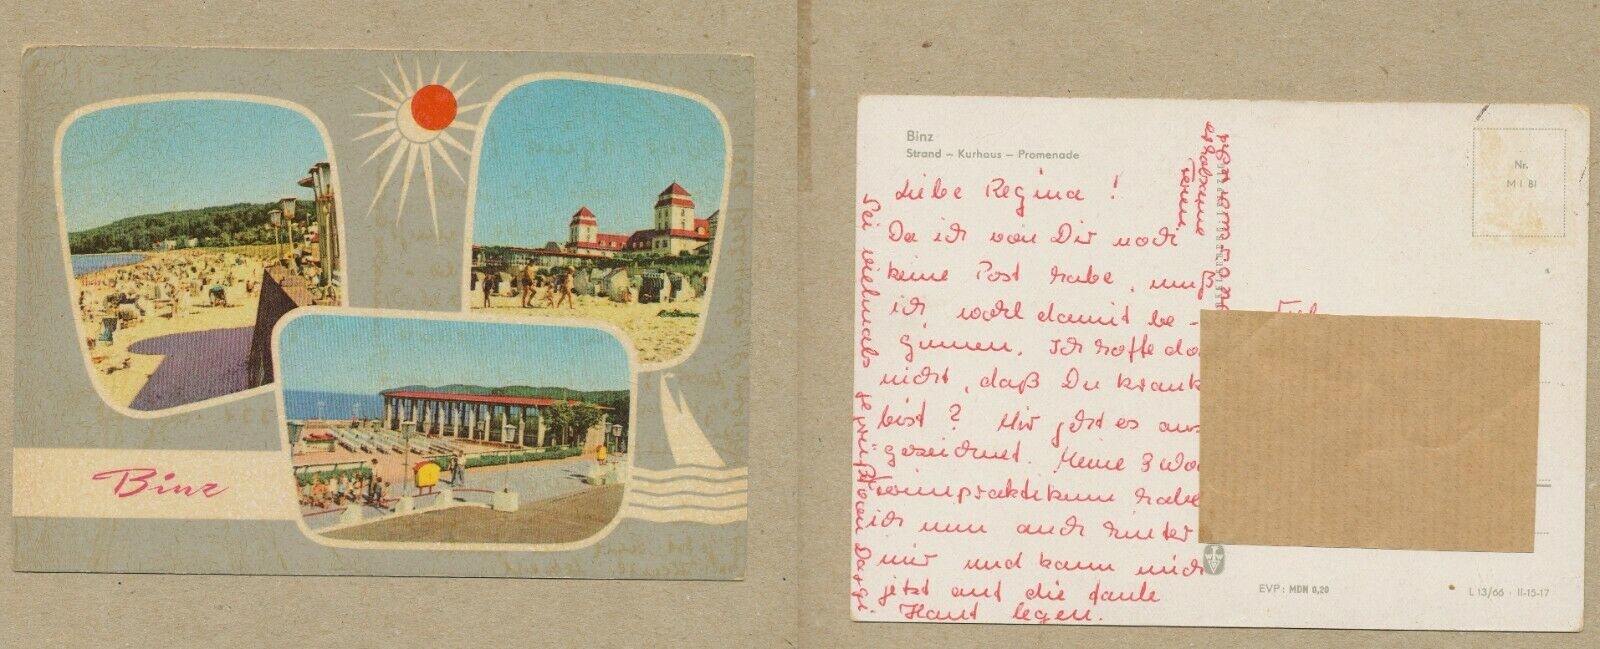 Binz
Binz
Strand – Kurhaus – Promenade
Nr.
M I BI
Liebe Regina!
Da ich von Dir noch
keine Post habe, muß
ich wohl damit be-
ginnen. Ich hoffe do
nicht, daß Du krank
bist? Mir geht es aus
gezeichnet. Meine 3 Wo
Ferienpraktikum habe
ich nun auch hinter
mir und kann mich
jetzt auf die faule
Haut legen.
Sei vielmals gegrüßt
Ferien.
EVP: MDN 0,20
L 13/66 · II-15-17